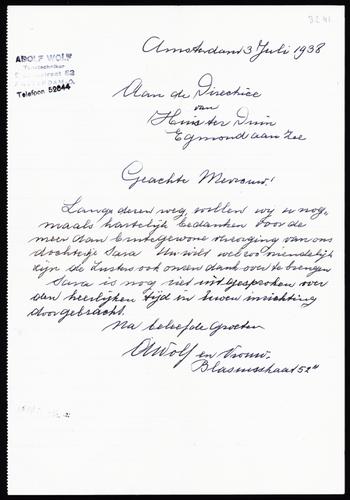 3241
ADOLF WOLF
Telefoon 52844
Amsterdam 3 Juli 1938
Aan de Directrice
van
Huis ter Duin
Egmond aan Zee
Geachte Mevrouw!
Langs deren weg, willen wij u nog-
maals hartelijk bedanken voor de
meer dan verzorging van ons
dochtertje Sara
zijn de Zusters ook onsen dank over te brengen
Sara is nog niet uitgesproken over
den heerlijken tijd in uwen inrichting
doorgebracht.
Na beleefde Groeten
AWolf en Vrouw.
Blasiusstraat 52"